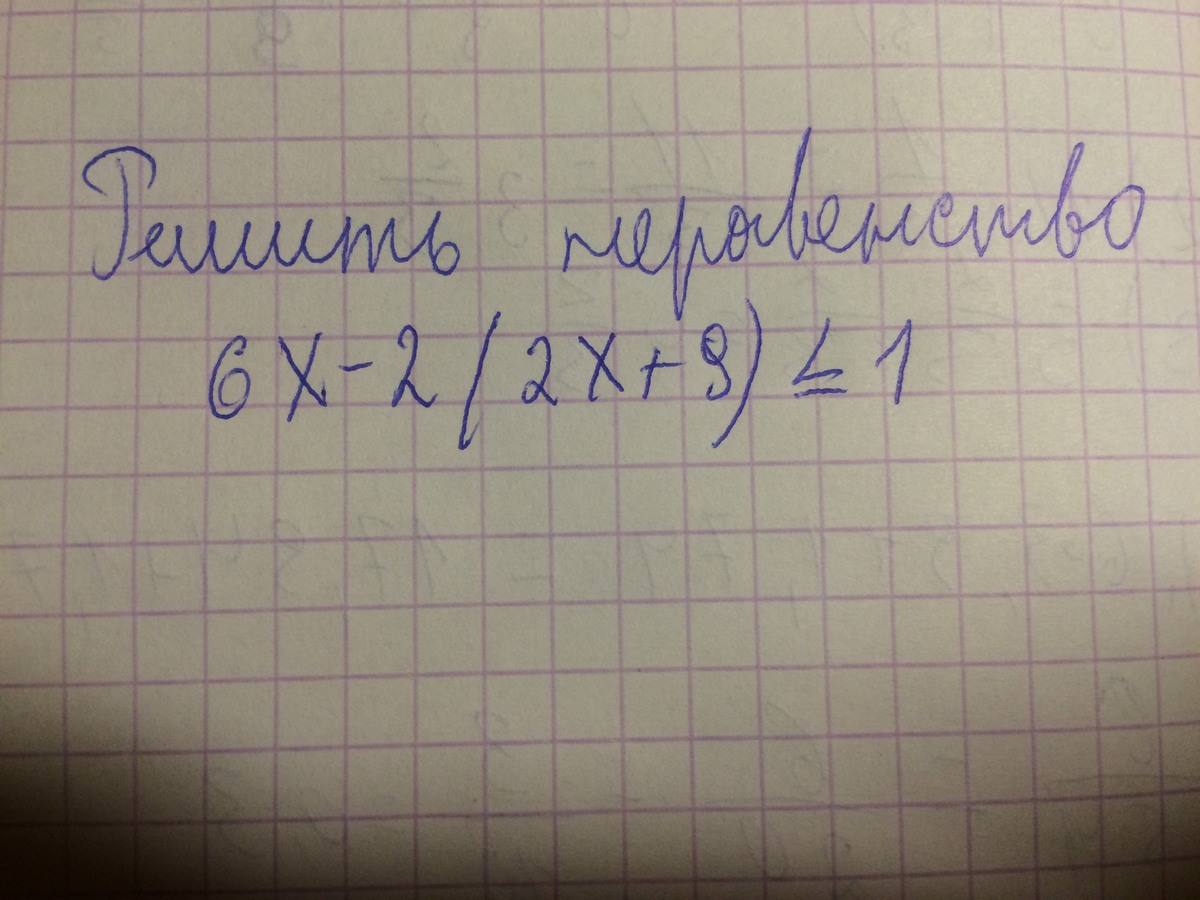 Решить неравенство
6x-2(2x+9)≤1